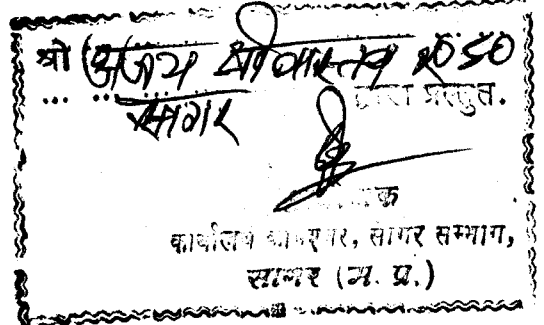 श्री अजय श्रीवास्तव एड०
सागर
द्वारा प्रस्तुत.
कार्यालय कमिश्नर, सागर सम्भाग,
सागर (म. प्र.)